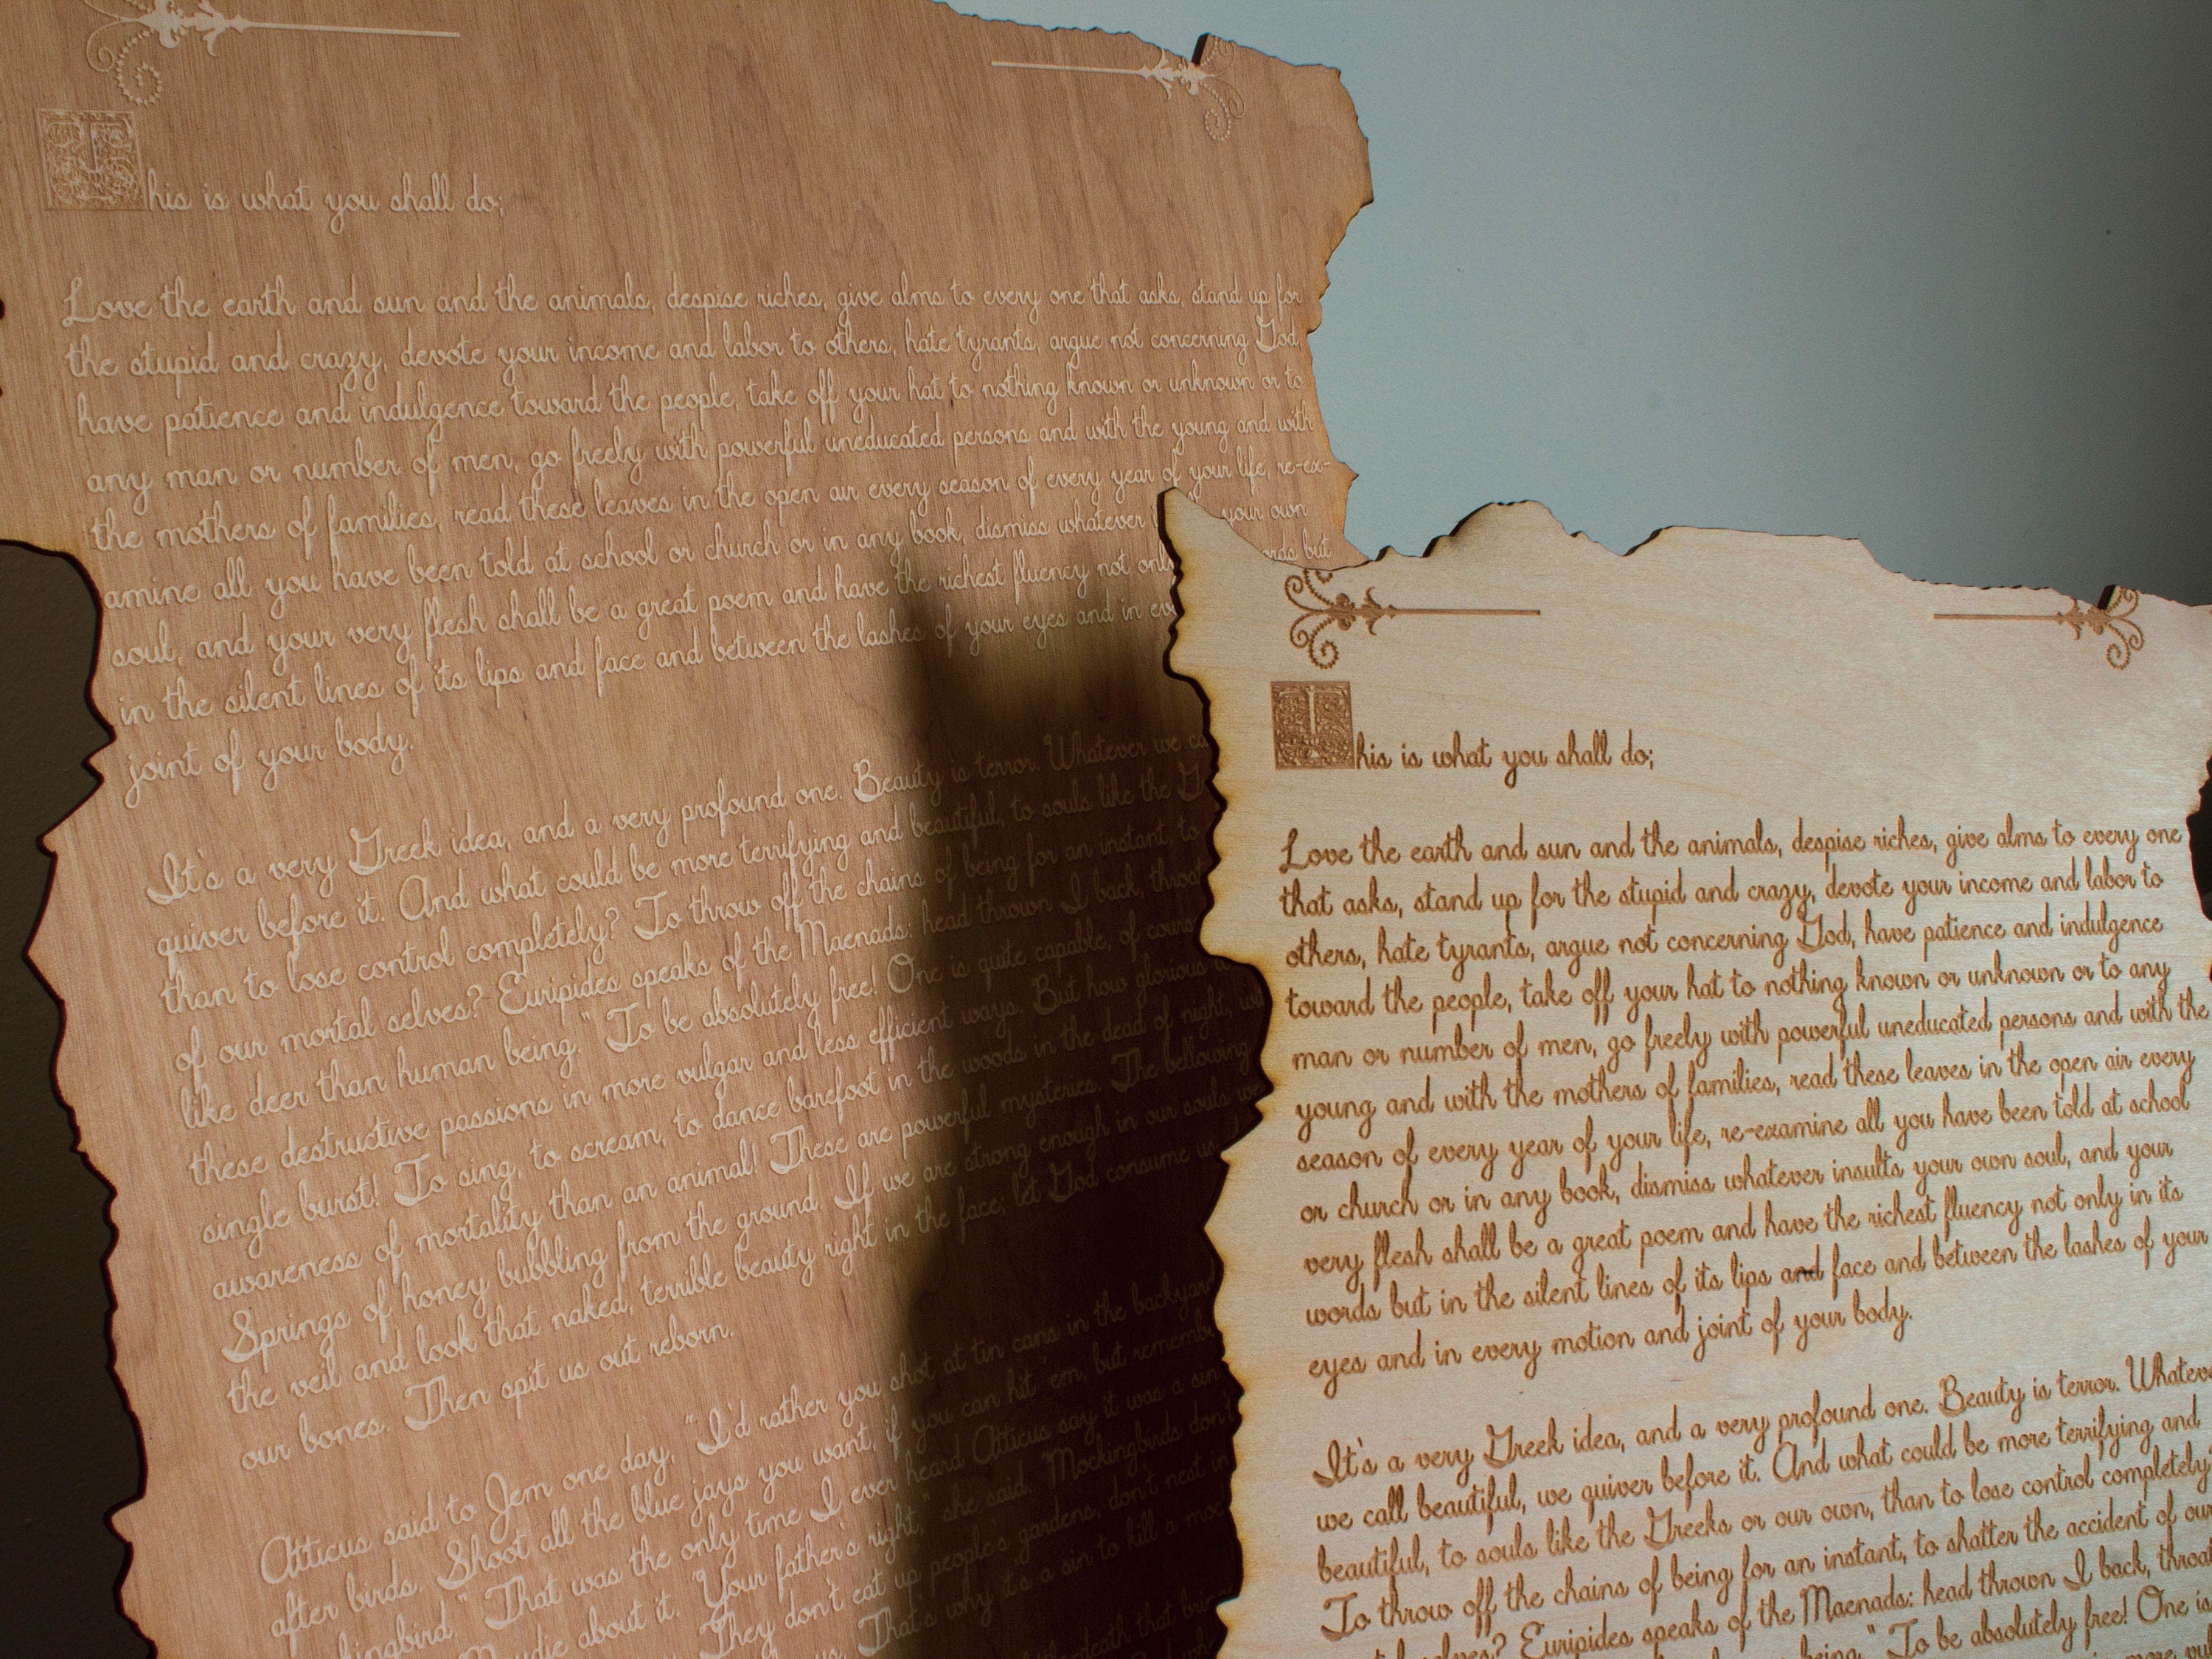 This is what you shall do;
Love the earth and sun and the animals, despise riches, give alms to every one that asks, stand up for
the stupid and crazy, devote your income and labor to others, hate tyrants, argue not concerning God,
have patience and indulgence toward the people, take off your hat to nothing known or unknown or to
any man or number of men, go freely with powerful uneducated persons and with the young and with
the mothers of families, read these leaves in the open air every season of every year of your life, re-ex-
amine all you have been told at school or church or in any book, dismiss whatever your own
soul, and your very flesh shall be a great poem and have the richest fluency not only but
in the silent lines of its lips and face and between the lashes of your eyes and in
joint of your body.
It's a very Greek idea, and a very profound one. Beauty is terror. Whatever we
quiver before it. And what could be more terrifying and beautiful, to souls like the
than to lose control completely? To throw off the chains of being for an instant, to
of our mortal selves? Euripides speaks of the Maenads: head thrown I back,
like deer than human being." To be absolutely free! One is quite capable, of
these destructive passions in more vulgar and less efficient ways. But how glorious
single burst! To sing, to scream, to dance barefoot in the woods in the dead of night,
awareness of mortality than an animal! These are powerful mysteries. The bellowing
Springs of honey bubbling from the ground. If we are strong enough in our souls
the veil and look that naked, terrible beauty right in the face; let God consume us
our bones. Then spit us out reborn.
Atticus said to Jem one day, "I'd rather you shot at tin cans in the backyard
after birds. Shoot all the blue jays you want, if you can hit 'em, but
" That was the only time I ever heard Atticus say it was a sin
about it. "Your father's right," she said. "Mockingbirds don't
They don't eat up people's gardens, don't nest in
That's why it's a sin to kill a
This is what you shall do;
Love the earth and sun and the animals, despise riches, give alms to every one
that asks, stand up for the stupid and crazy, devote your income and labor to
others, hate tyrants, argue not concerning God, have patience and indulgence
toward the people, take off your hat to nothing known or unknown or to any
man or number of men, go freely with powerful uneducated persons and with the
young and with the mothers of families, read these leaves in the open air every
season of every year of your life, re-examine all you have been told at school
or church or in any book, dismiss whatever insults your own soul, and your
very flesh shall be a great poem and have the richest fluency not only in its
words but in the silent lines of its lips and face and between the lashes of your
eyes and in every motion and joint of your body.
It's a very Greek idea, and a very profound one. Beauty is terror.
we call beautiful, we quiver before it. And what could be more terrifying and
beautiful, to souls like the Greeks or our own, than to lose control completely
To throw off the chains of being for an instant, to shatter the accident of our
Euripides speaks of the Maenads: head thrown I back, throat
being." To be absolutely free! One is